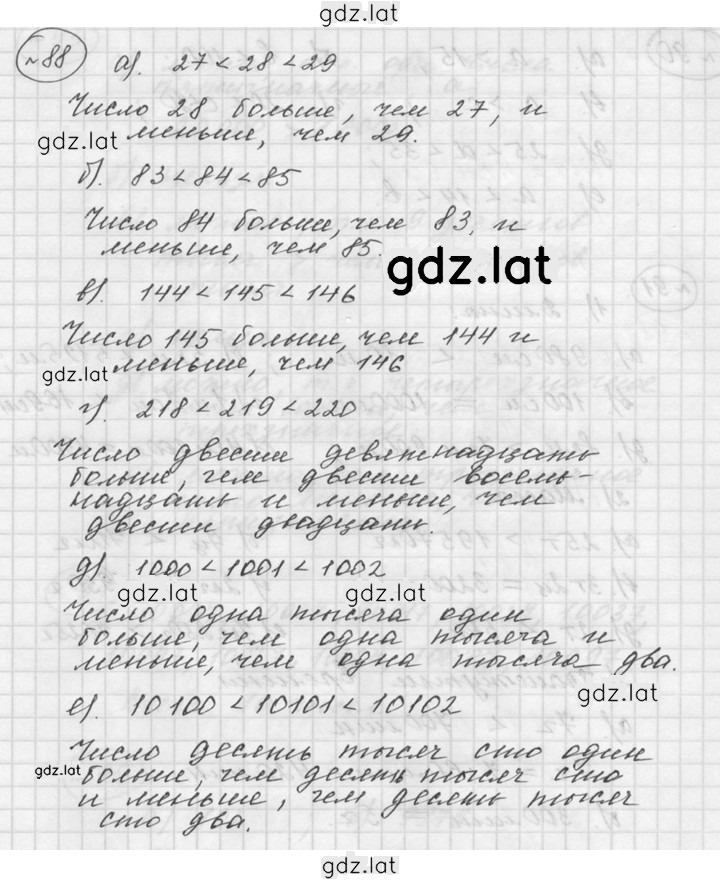 gdz.lat
№88 а). 27 < 28 < 29
Число 28 больше, чем 27, и
gdz.lat меньше, чем 29.
б). 83 < 84 < 85
Число 84 больше, чем 83, и
меньше, чем 85.
gdz.lat
в). 144 < 145 < 146
Число 145 больше, чем 144 и
gdz.lat меньше, чем 146
г). 218 < 219 < 220
Число двести девятнадцать
больше, чем двести восем-
надцать и меньше, чем
двести двадцать.
д). 1000 < 1001 < 1002
gdz.lat gdz.lat
Число одна тысяча один
больше, чем одна тысяча и
меньше, чем одна тысяча два.
gdz.lat
е). 10100 < 10101 < 10102
Число десять тысяч сто один
gdz.lat больше, чем десять тысяч сто
и меньше, чем десять тысяч
сто два.
gdz.lat